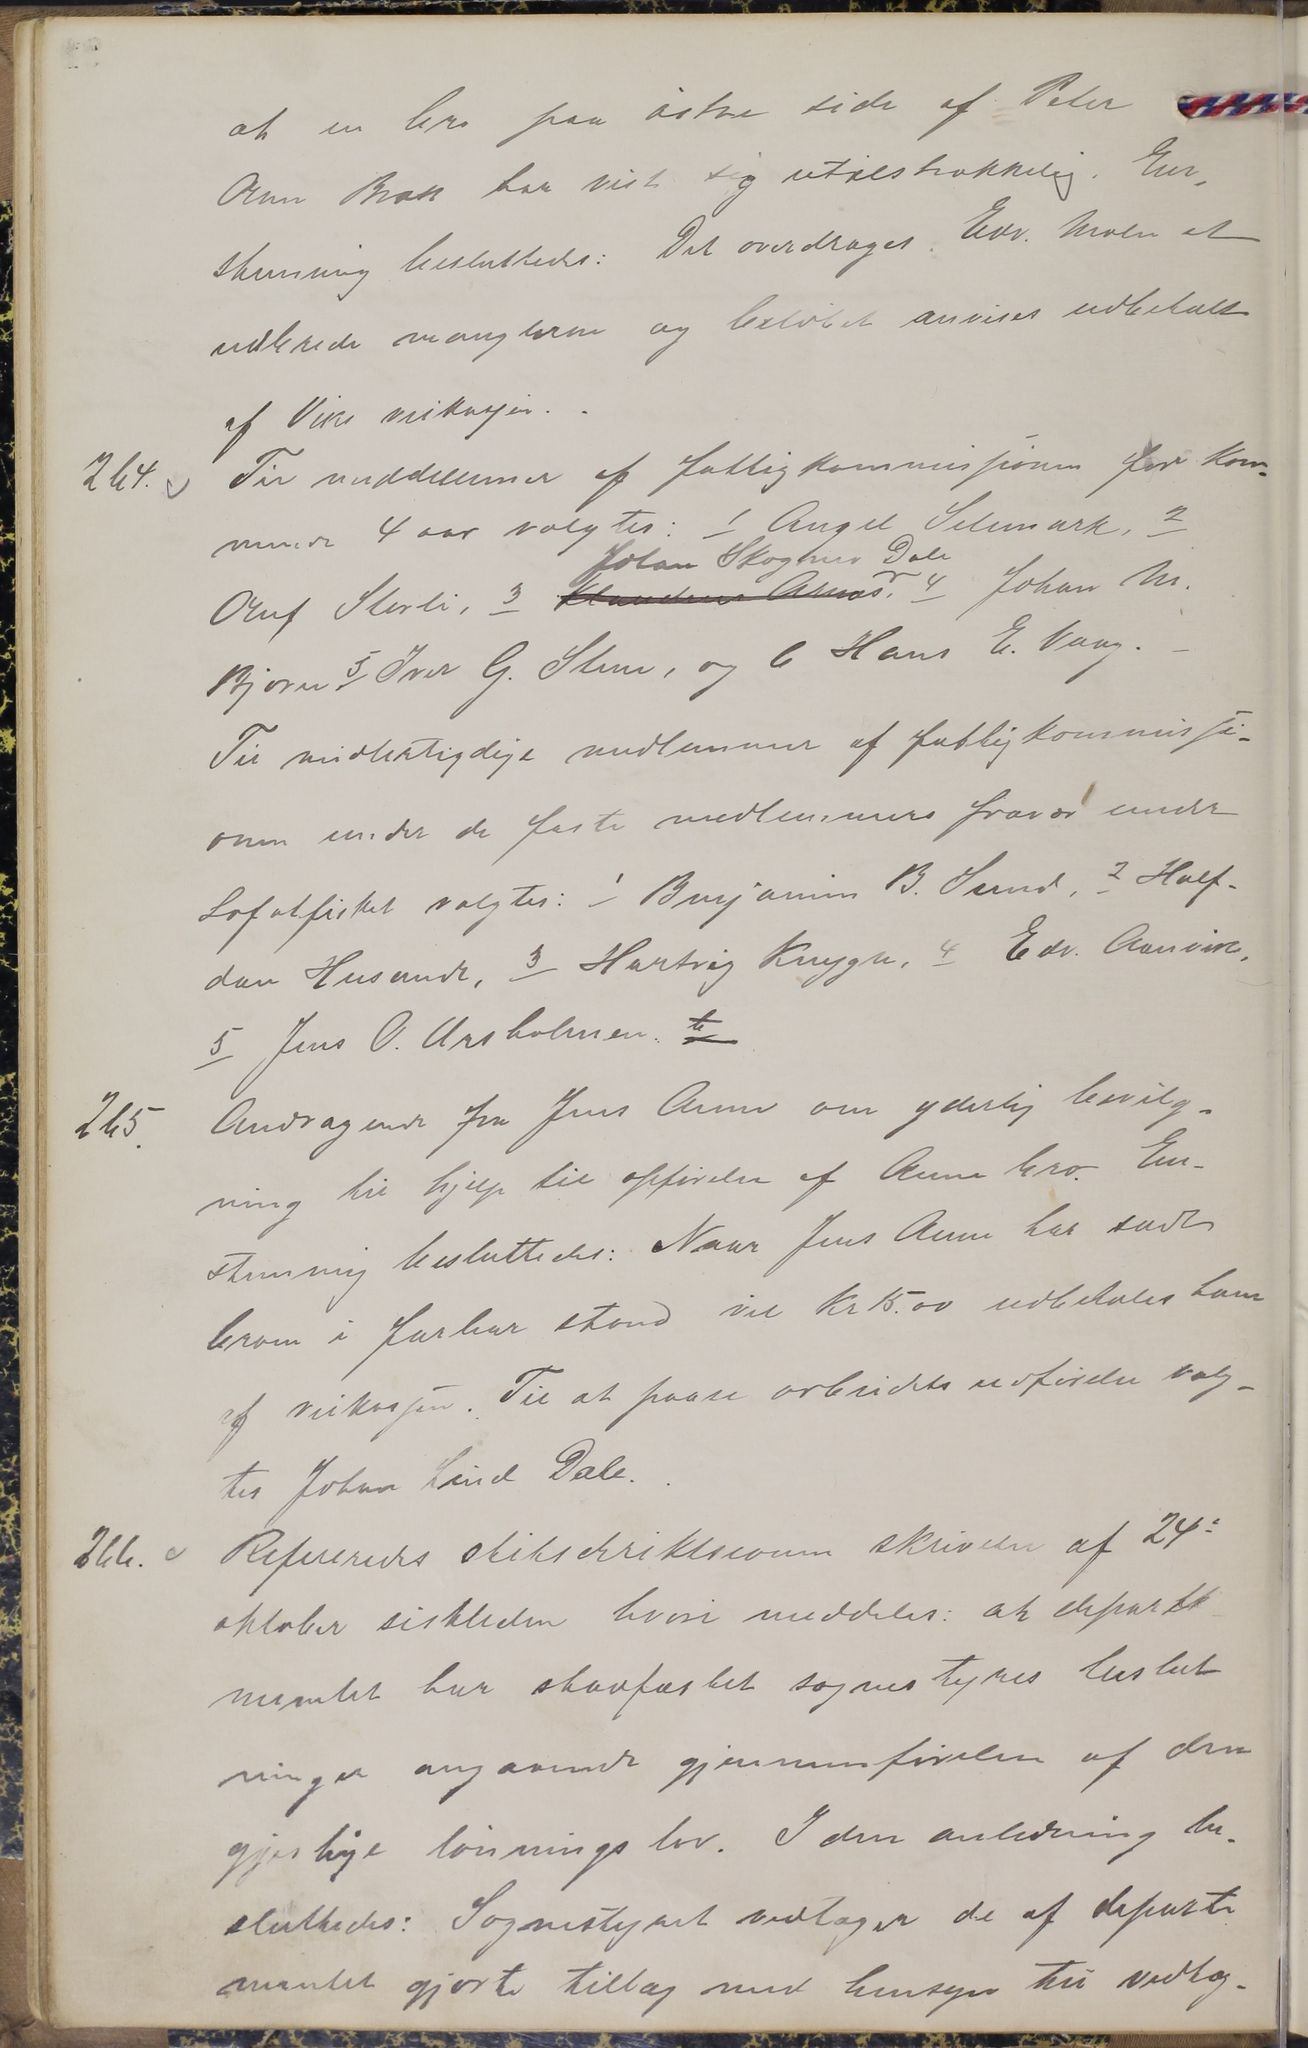 at en bro paa östre side af Peter
Aune Brak har vist sig utilstrækkelig. Een-
stemmig besluttedes: Det overdrages Edv. Moen at
udbedre manglerne og beløbet anvises udbetalt
af Viks veikasse.
264. Til meddlemmer af fattigkommissjonen for kom-
mende 4 aar valgtes: 1 Angel Selsmark, 2
Johan Skogmo Dale
Oluf Storli, 3 4 Johan M.
Bjoren 5 Iver G. Stene, og 6 Hans E. Vaag.
Til midlertigdige medlemmer af fattigkommissji-
onen under de faste medlemmers fravær under
Lofotfisket valgtes: 1 Benjamin B. Sund, 2 Half-
dan Husande, 3 Hartvig Knygh, 4 Edv. Aanvik,
5 Jens O. Ursholmen.
265. Andragende fra Jens Aune om yderlig bevilg-
ning til hjelp til opförelse af Aune bro. Een-
stemmig besluttedes: Naar Jens Aune har sadt
broen i farbar stand vil Kr 15.00 udbetales ham
af veikassen. Til at paase arbeidets udførelse valg-
tes Johan Lind Dale.
266. Refereredes stiftsdirektionens skrivelse af 24de
oktober sistleden hvori meddeles: at departe
mentet har stadfæstet sognestyres beslut
ninger angaaende gjennemförelsen af den
gjestlige lönningslov. I den anledning be-
sluttedes: Sognestyret vedtager de af departe
mentet gjorte tillæg med hensyn til vedtag-